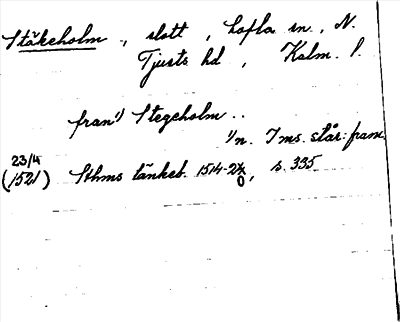 Stäkeholm, slott, Lofta sn., N.
Tjusts hd, Kalm. l.
fran¹) Stegeholm..
¹/n. I ms. står: fram
23/4
(1521) Sthms tänkeb. 1514-2%0, s. 335